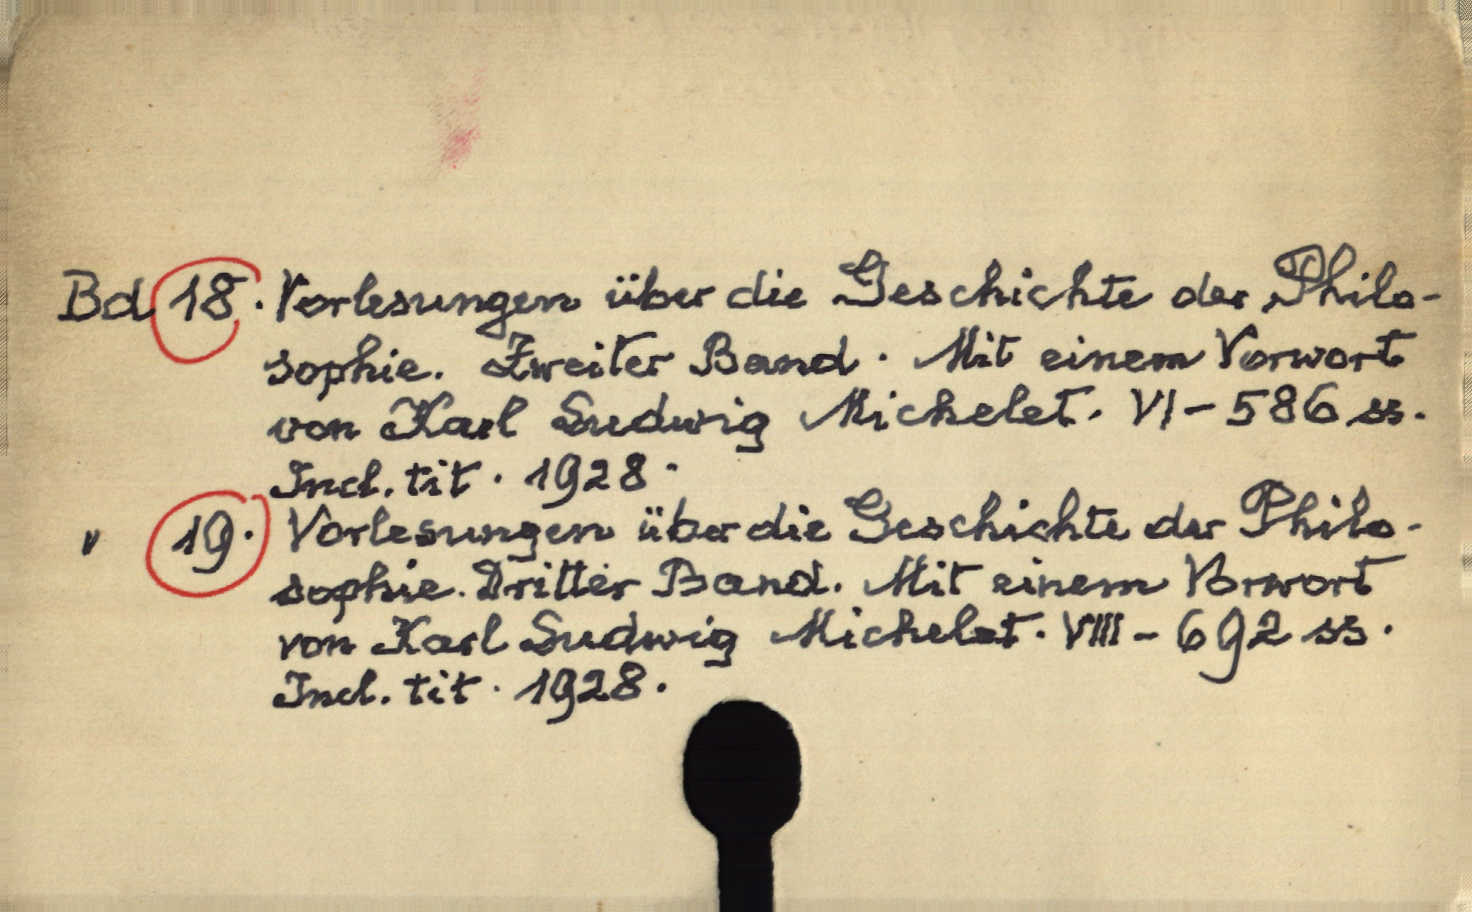 Bd 18. Vorlesungen über die Geschichte der Philo-
sophie. Zweiter Band. Mit einem Vorwort
von Karl Ludwig Michelet. VI - 586 ss.
Incl. tit. 1928.
" 19. Vorlesungen über die Geschichte der Philo-
sophie. Dritter Band. Mit einem Vorwort
von Karl Ludwig Michelet. VIII - 692 ss.
Incl. tit. 1928.